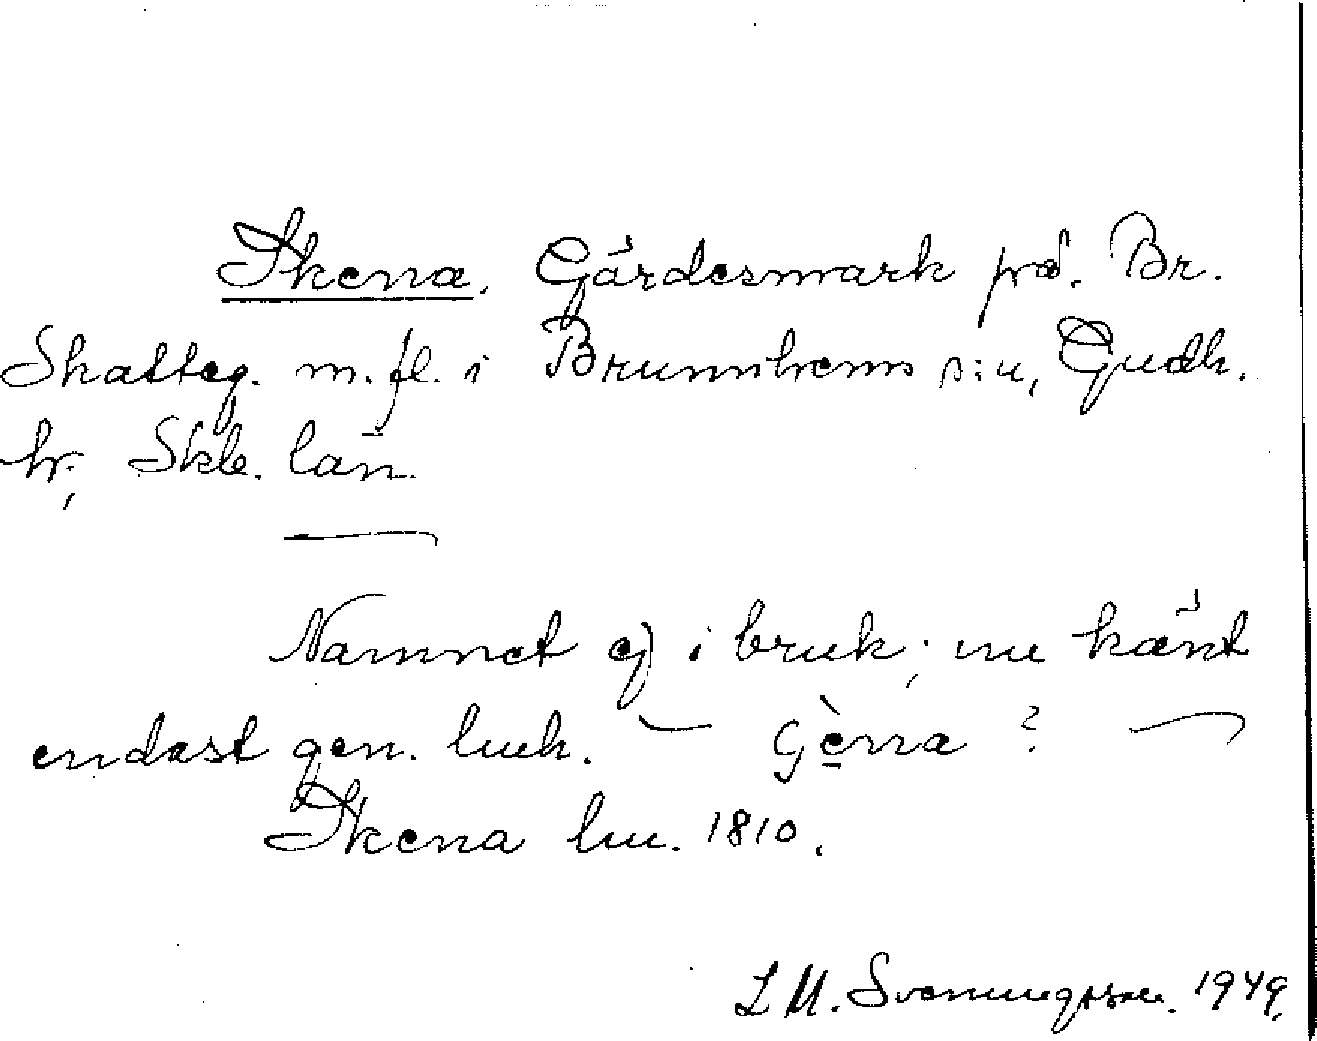 Skena. Gärdesmark på. Br.
Skatteg. m. fl. i Brunnhems s:n, Gudh.
hr, Skb. län.
Namnet ej i bruk; nu känt
endast gen. lmh. — Gèna ? —
Skena lm. 1810.
L M. Svenungsson. 1949.